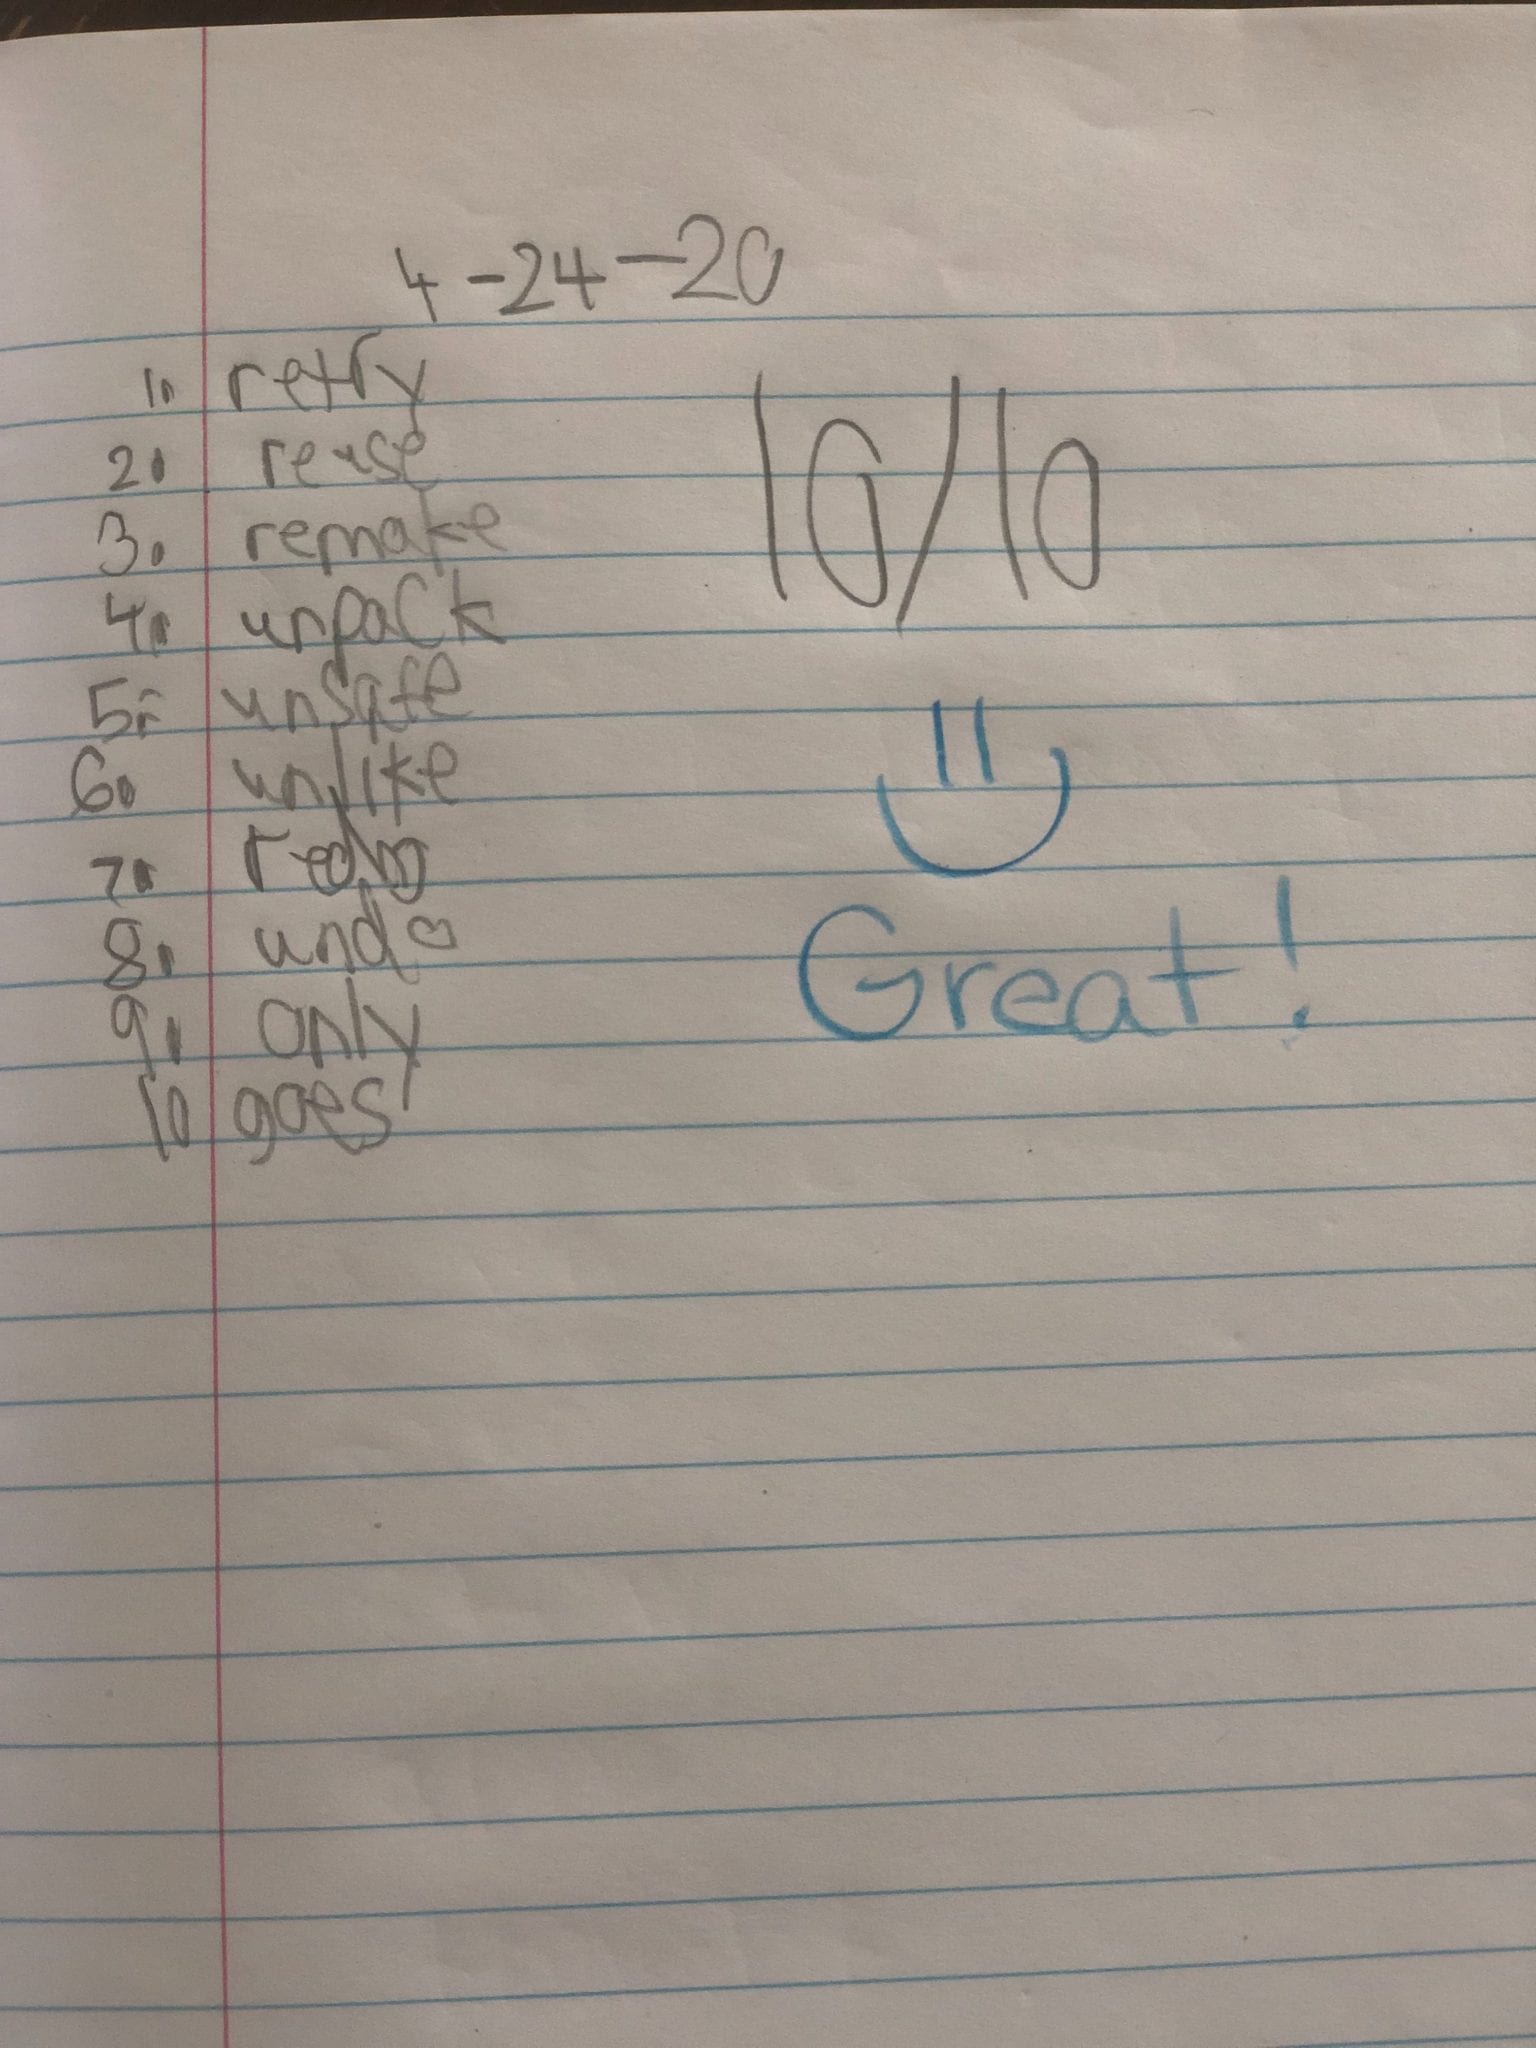 4-24-20
1. retry
2. reuse
3. remake
4. unpack
5. unsafe
6. unlike
7. redo
8. undo
9. only
10 goes
10/10
Great!